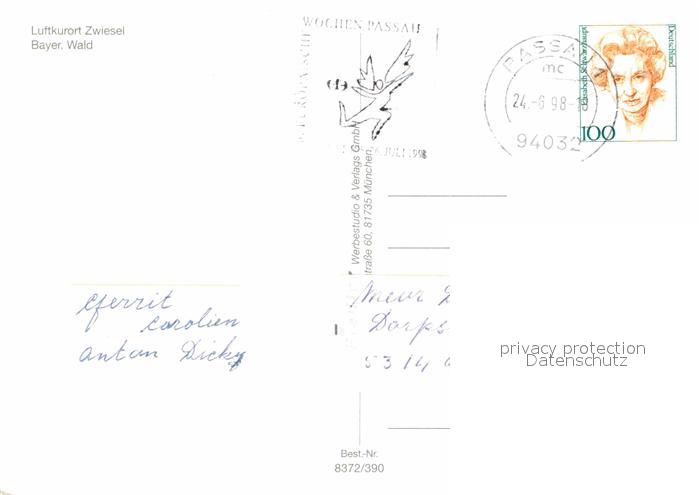 Luftkurort Zwiesel
Bayer. Wald
WOCHEN PASSAU
JULI 1998
PASSAU
mc
24.-6.98-1
94032
Deutschland
Elisabeth Schwarzhaupt
100
Werbestudio & Verlags GmbH
straße 60, 81735 München
Gerrit
Carolien
Anton Dicky
Mevr
Dorps
5314
privacy protection
Datenschutz
Best.-Nr.
8372/390